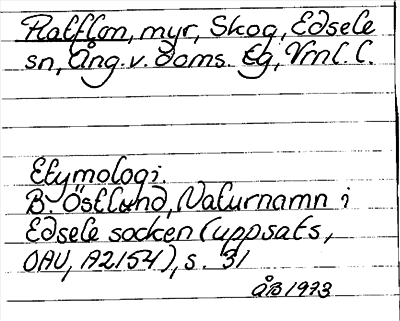 Flatflon, myr, Skog, Edsele
sn, Ång. v. doms. Eg, Vml. C.
Etymologi.
B Östlund, Naturnamn i
Edsele socken (uppsats,
OAU, A2154), s. 31
ÅB 1973